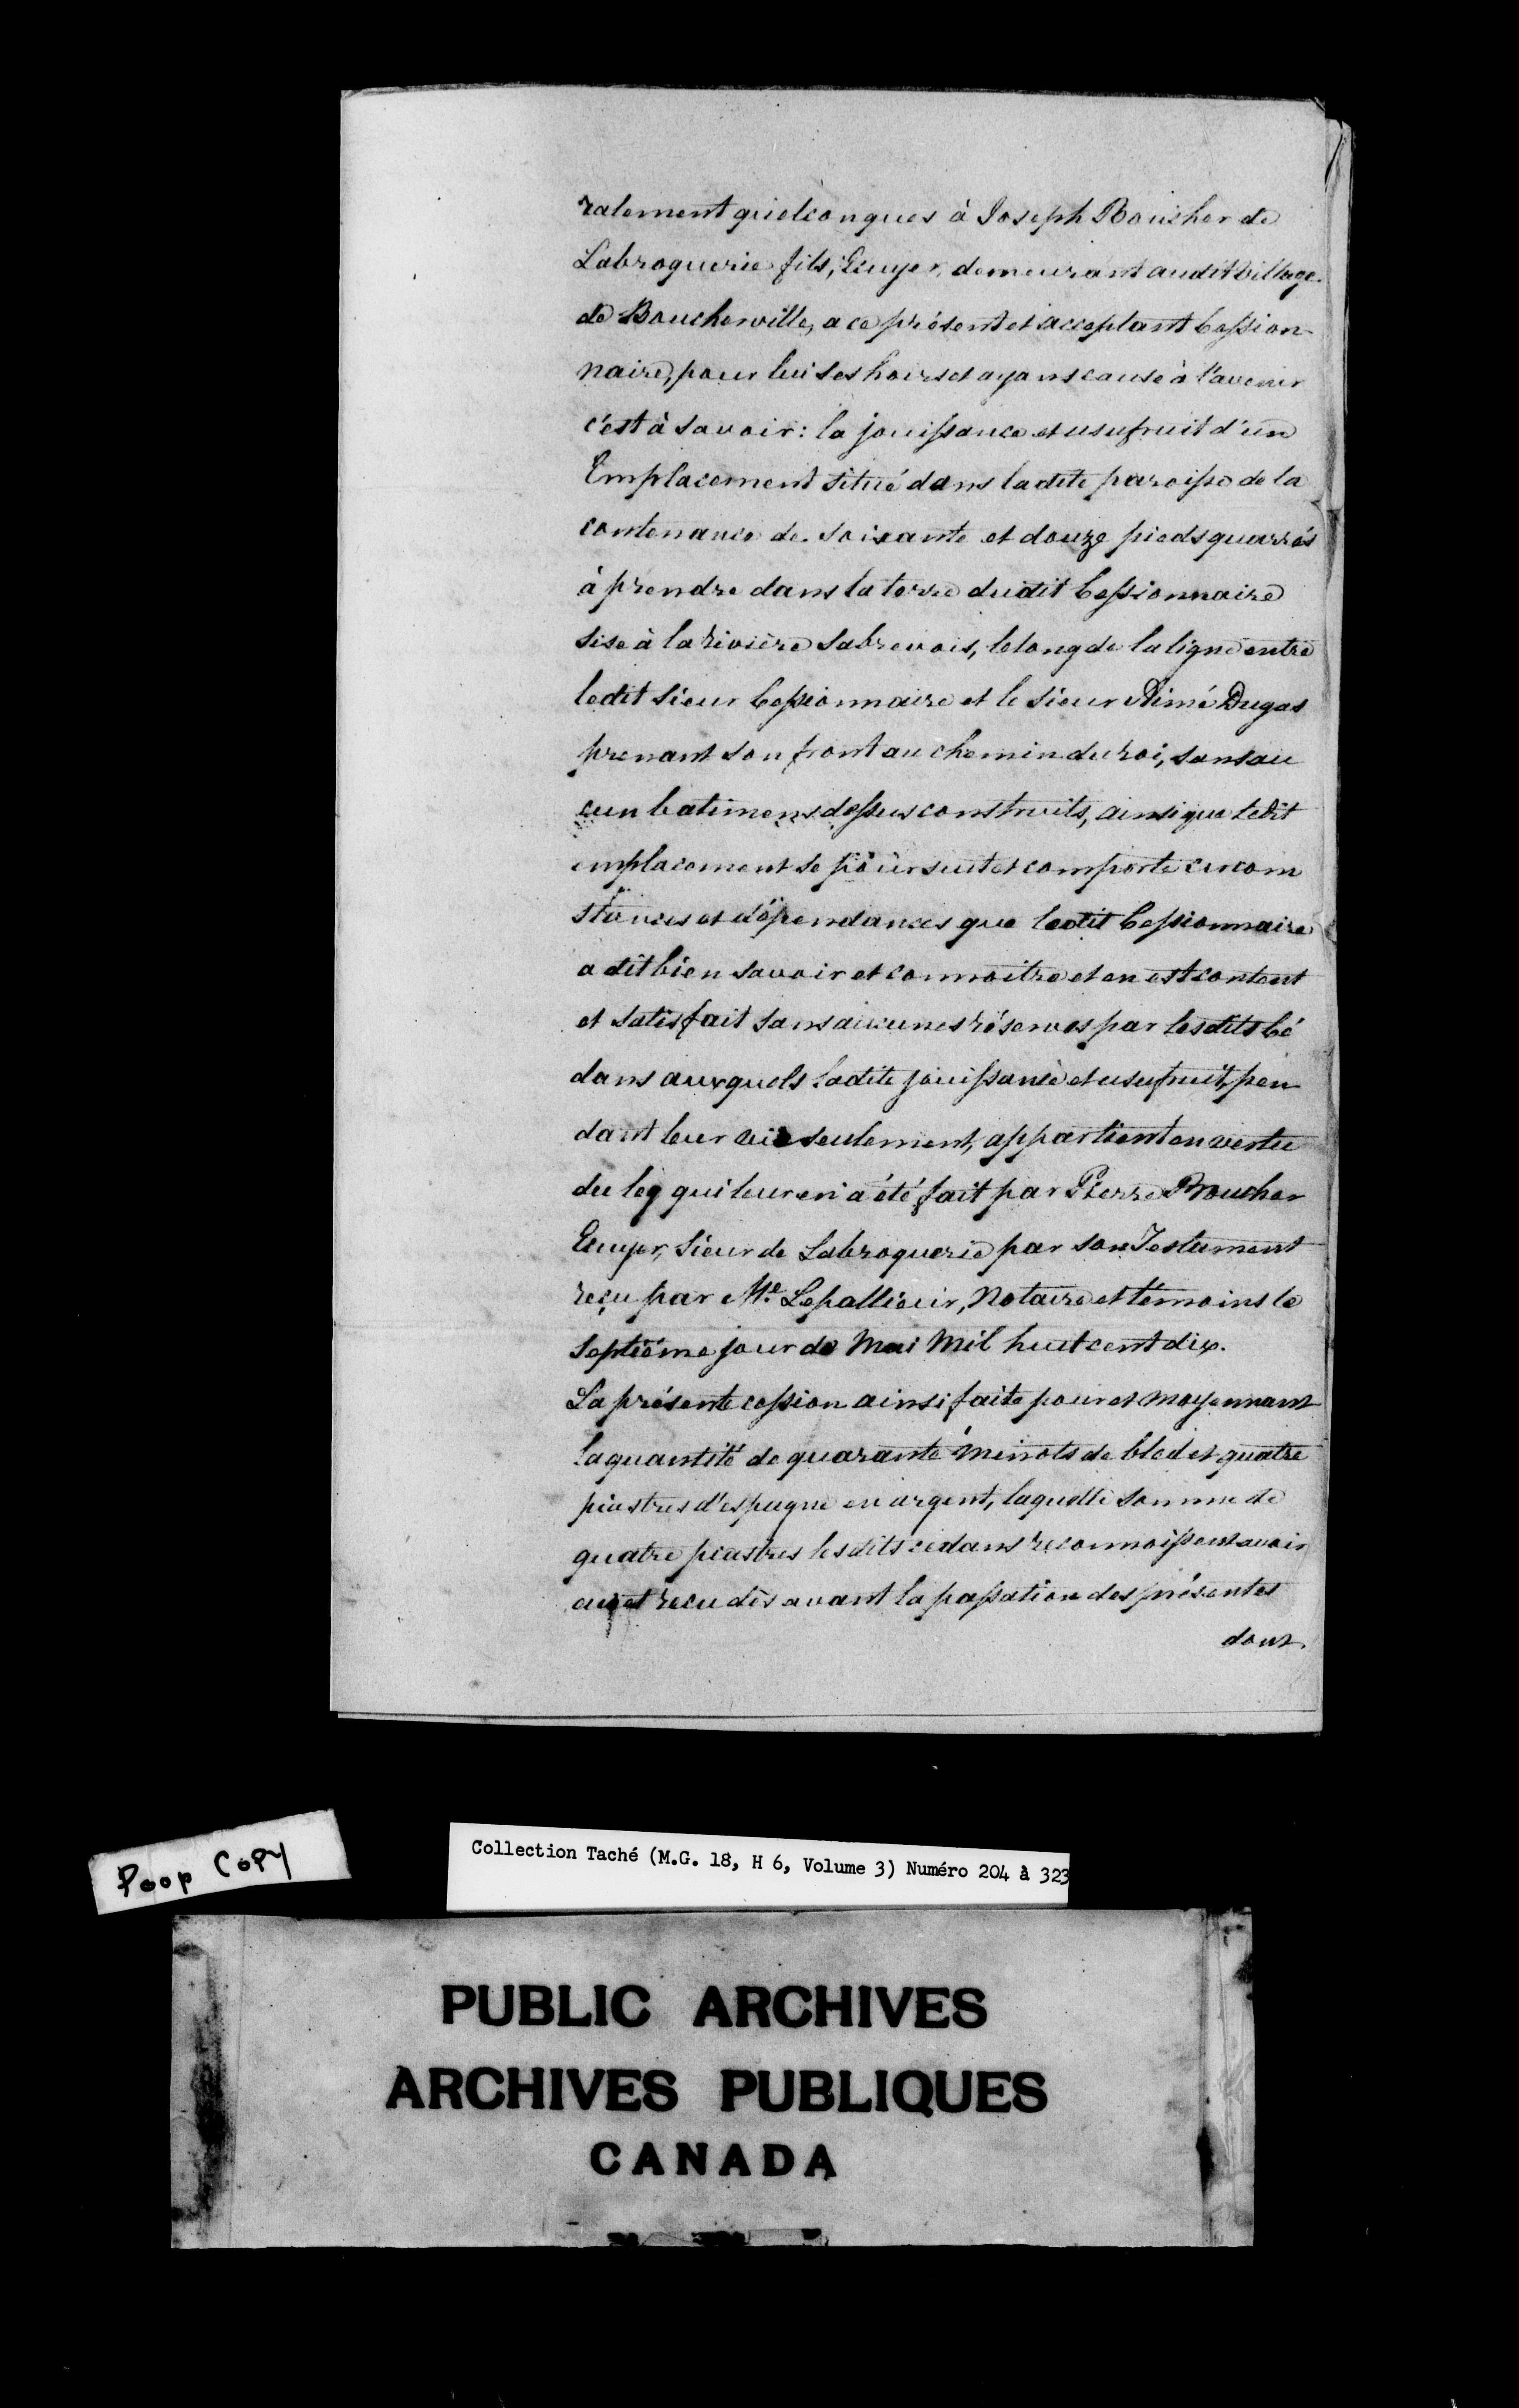 ralement quelconques à Joseph Boucher de
Labroquerie fils, Ecuyer, demeurant audit Village
de Boucherville, a ce présent et acceptant Cession-
naire, pour lui ses hoirs et ayans cause à l'avenir
c'est à savoir: la jouissance et usufruit d'un
Emplacement situé dans ladite paroisse de la
contenance de soixante et douze pieds quarrés
à prendre dans la terre dudit Cessionnaire
sise à la rivière Sabrevois, le long de la ligne entre
ledit sieur Cessionnaire et le sieur Aimé Dugas
prenant son front au chemin du roi, sans au
cun batimens dessus construits, ainsi que ledit
emplacement se poursuit et comporte circom
stances et dépendances que ledit Cessionnaire
a dit bien savoir et connoitre et en est content
et satisfait sans aucunes réserves par lesdits Cé
dans auxquels ladite jouissance et usufruit, pen
dant leur vie seulement, appartient en vertu
du leg qui leur en a été fait par Pierre Boucher
Ecuyer, Sieur de Labroquerie par son Testament
reçu par Me. Lepallieur, Notaire et témoins le
septiéme jour de Mai Mil huit cent dix.
La présente cession ainsi faite pour et moyennant
la quantité de quarante minots de bled et quatre
piastres d'espagne en argent, laquelle somme de
quatre piastres lesdits cédans reconnoissent avoir
eu et recu dès avant la passation des présentes
dont
Poop COPY
Collection Taché (M.G. 18, H 6, Volume 3) Numéro 204 à 323
PUBLIC ARCHIVES
ARCHIVES PUBLIQUES
CANADA